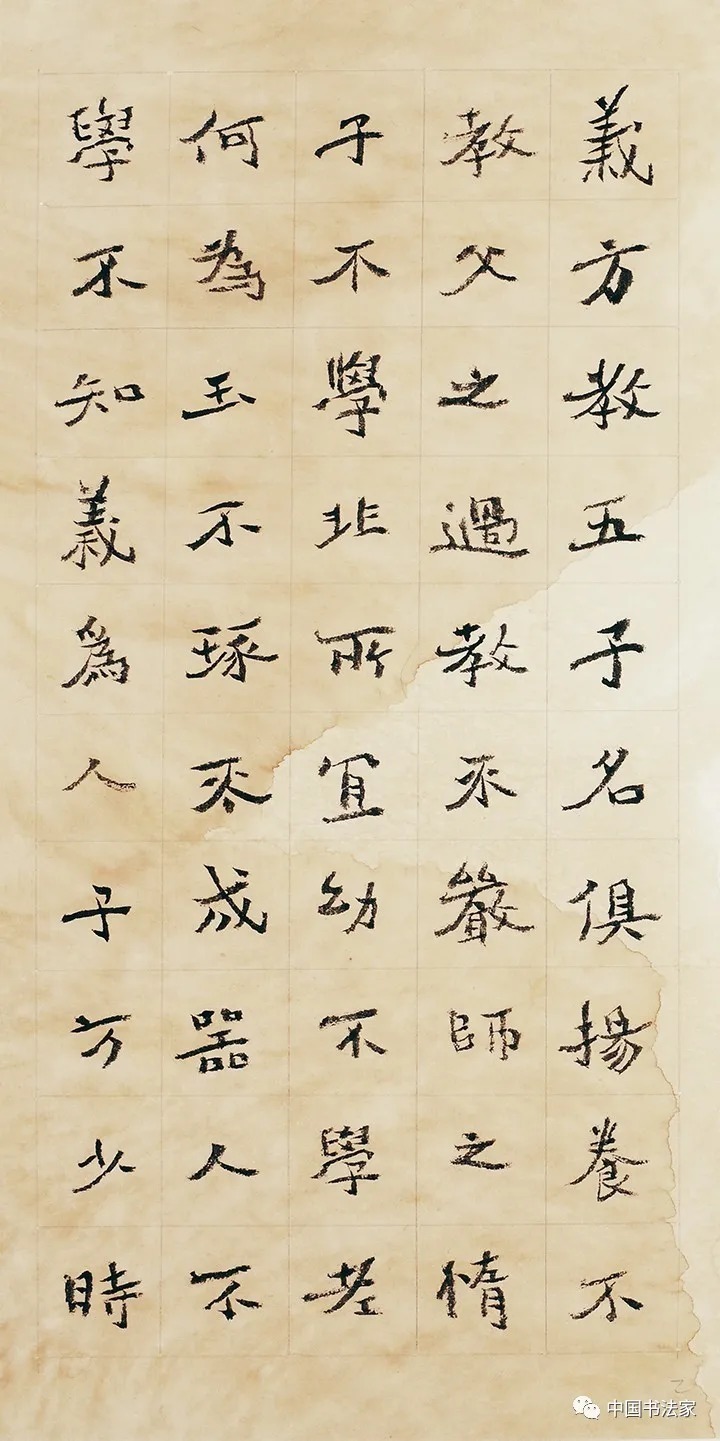 義方教五子名俱揚養不
教父之過教不嚴師之惰
子不學非所宜幼不學老
何為玉不琢不成器人不
學不知義爲人子方少時
中国书法家